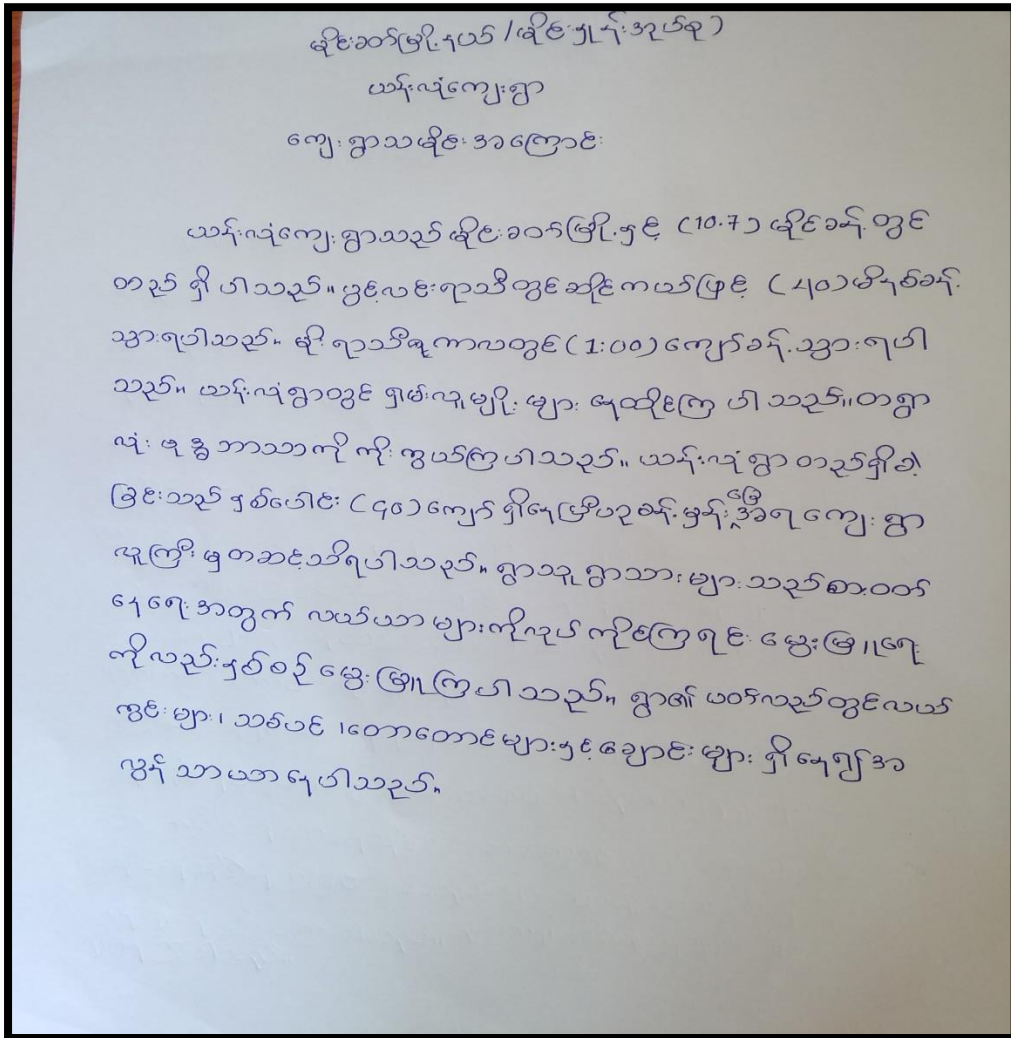 မိုင်းခတ်မြို့နယ် /မိုင်းရှုန်းအုပ်စု)
ယန်းလုံကျေးရွာ
ကျေးရွာသမိုင်းအကြောင်း
ယန်းလုံကျေးရွာသည် မိုင်းခတ်မြို့နှင့် (10.7) မိုင်ခန့် တွင်
တည် ရှိ ပါသည်။ ပွင့်လင်းရာသီတွင် ဆိုင်ကယ်ဖြင့် (၂၀) မိနစ်ခန့်
သွားရပါသည်။ မိုးရာသီရာကာလတွင် (1:00) ကျော်ခန့် သွားရပါ
သည်။ ယန်းလုံရွာတွင် ရှမ်းလူမျိုး များ နေထိုင်ကြ ပါသည်။ တရွာ
လုံး ဗုဒ္ဓဘာသာကို ကိုးကွယ်ကြပါသည်။ ယန်းလုံရွာ တည်ရှိခဲ့
ခြင်းသည် နှစ်ပေါင်း (၄၀) ကျော် ရှိနေပြီဟု ခန့်မှန်းခြေအရ ကျေးရွာ
လူကြီးမှတဆင့်သိရပါသည်။ ရွာသူ ရွာသားများသည် စားဝတ်
နေရေးအတွက် လယ်ယာများကိုလုပ်ကိုင်ကြရင်း မွေးမြူရေး
ကိုလည်းနှစ်စဉ် မွေးမြူကြပါသည်။ ရွာ၏ ပတ်လည်တွင်လယ်
ကွင်းများ၊ သစ်ပင် ၊တောတောင်များနှင့်ချောင်းများ ရှိနေ၍ အ
လွန်သာယာနေပါသည်။